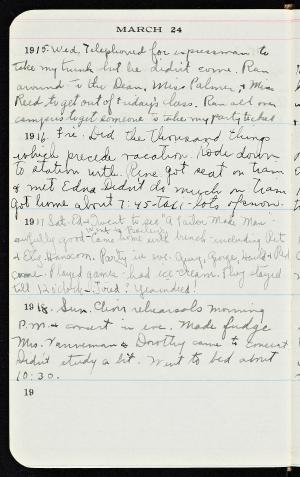 MARCH 24
1915 Wed. Telephoned for expressman to
take my trunk but he didn't come. Ran
around to the Dean, Miss Palmer, & Miss
Reed to get out of Friday's class. Ran all over
campus to get someone to take my party ticket
1916. Fri. Did the thousand things
which precede vacation. Rode down
to station with Rene got seat on train
& met Edna Didn't do much on train
Got home about 7:45-taxi-lots of snow.
1917 Sat. Ed & I went to see "A Tailor Made Man"
awfully good - Came home with bunch - including Pet
& Eliz Hanscom. Party in eve.
came - Played games - had ice cream. They stayed
till 12 o'clock - Tired? Yea indeed!
1918. Sun. Choir rehearsals morning
P.M. & concert in eve. Made fudge
Mrs. Vanneman & Dorothy came to concert
Didn't study a bit. Went to bed about
10:30.
19